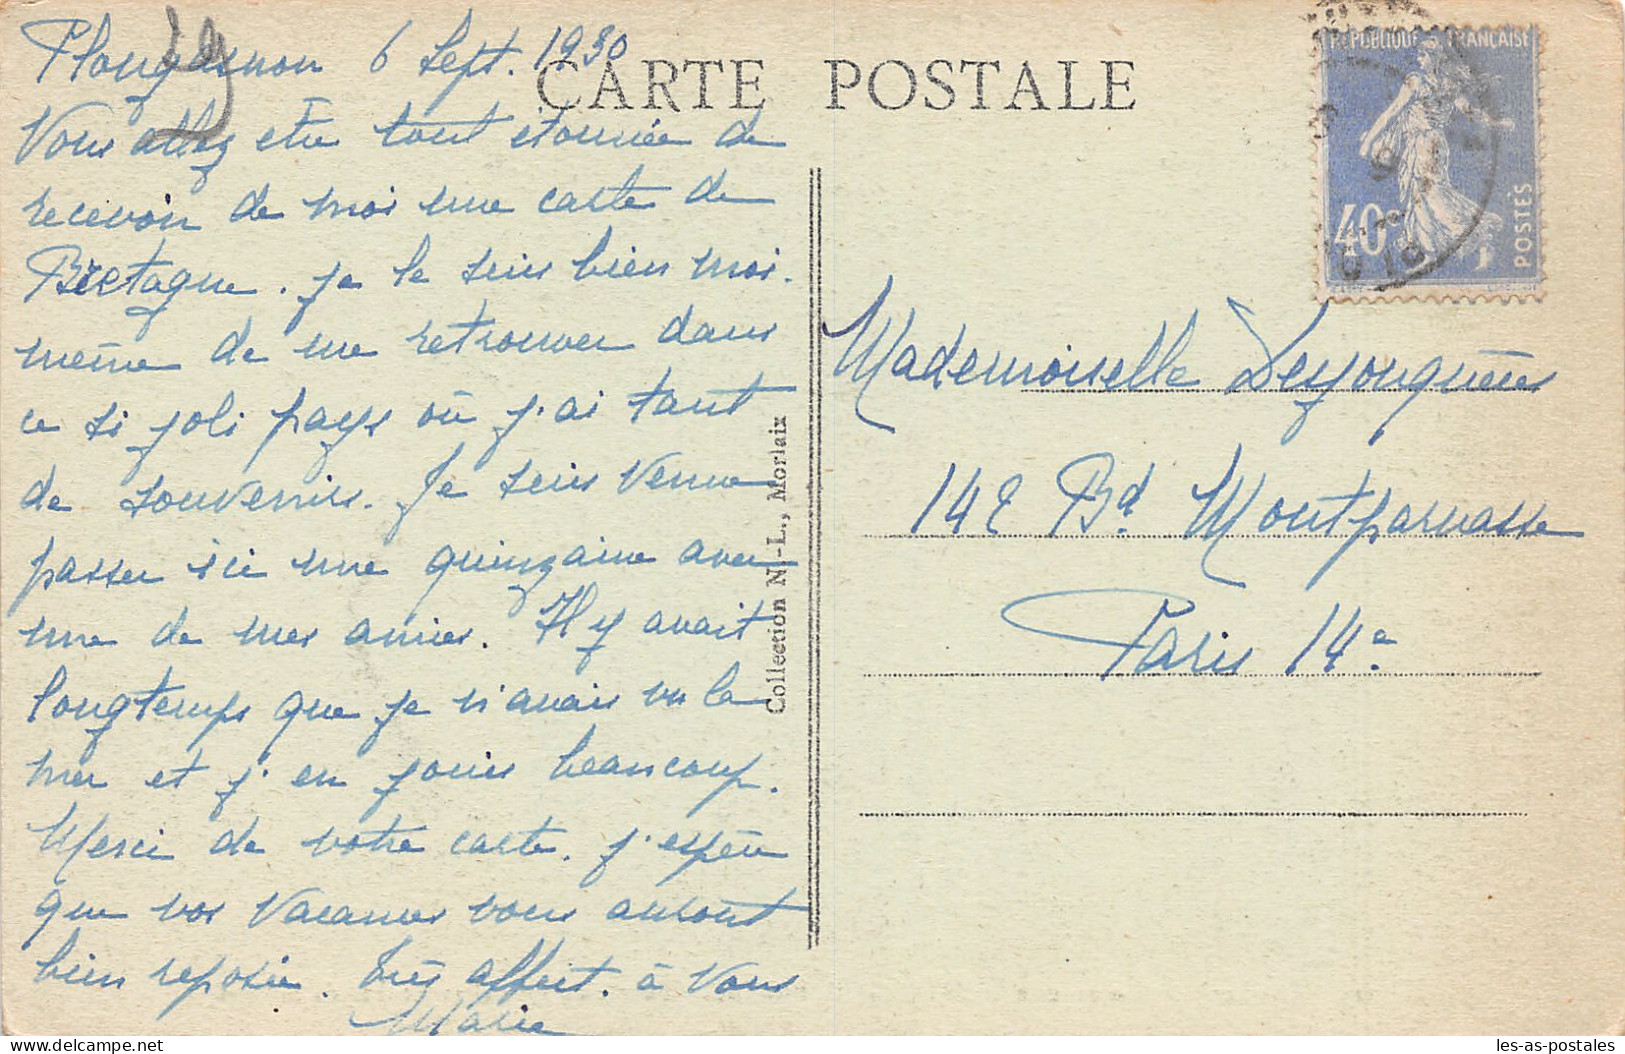 Plougasnou 6 Sept. 1930
CARTE POSTALE
Vous allez être tout étonnée de
recevoir de moi une carte de
Bretagne. Je le suis bien moi-
même de me retrouver dans
ce si joli pays où j'ai tant
de souvenirs. Je suis venue
passer ici une quinzaine avec
une de mes amies. Il y avait
longtemps que je n'avais vu la
mer et j'en jouis beaucoup.
Merci de votre carte. J'espère
que vos vacances vous auront
bien reposée. Très affect. à vous
Marie
Collection N.-L., Morlaix
REPUBLIQUE FRANÇAISE
40c
POSTES
Mademoiselle
142 Bd Montparnasse
Paris 14e
les-as-postales
delcampe.net